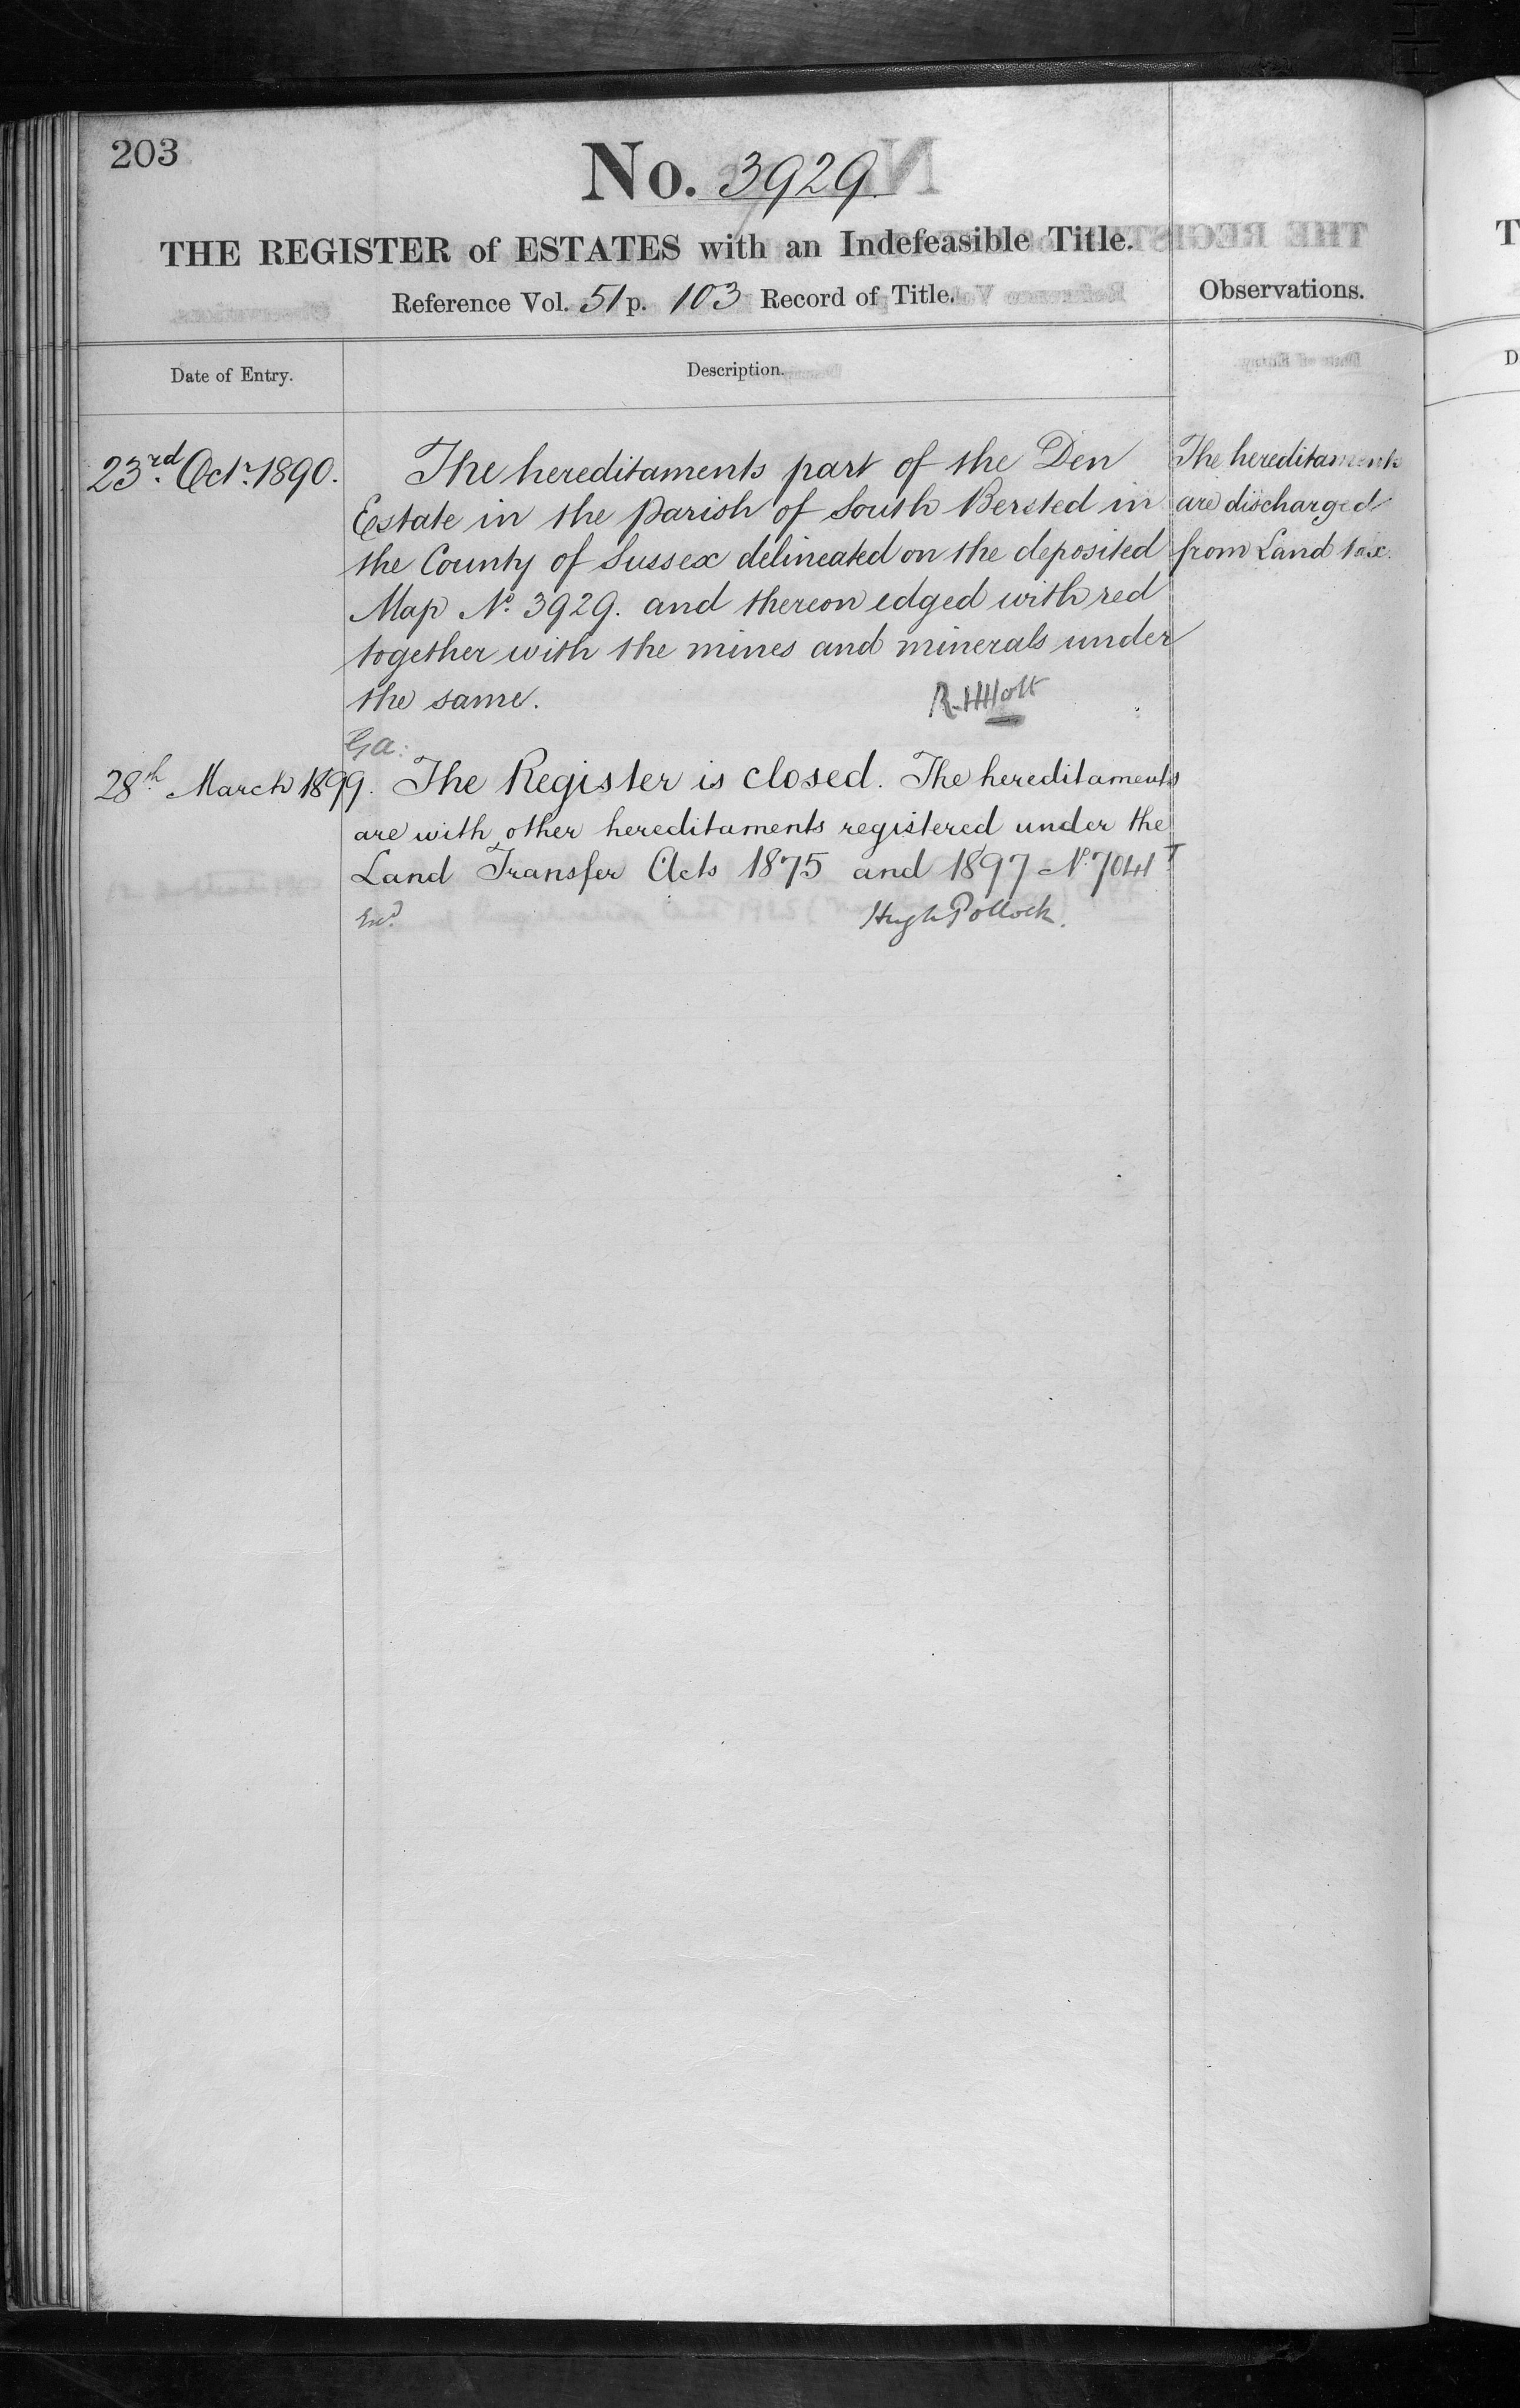 203
No. 3929.
THE REGISTER of ESTATES with an Indefeasible Title.
Reference Vol. 51 p. 103 Record of Title.
Observations.
Date of Entry.
Description.
23rd Octr. 1890.
The hereditaments part of the Den
Estate in the Parish of South Bersted in
the County of Sussex delineated on the deposited
Map No. 3929. and thereon edged with red
together with the mines and minerals under
the same.
The hereditaments
are discharged
from Land tax.
28th March 1899. The Register is closed. The hereditaments
are with other hereditaments registered under the
Land Transfer Acts 1875 and 1897 No. 7041
Hugh Pollock.